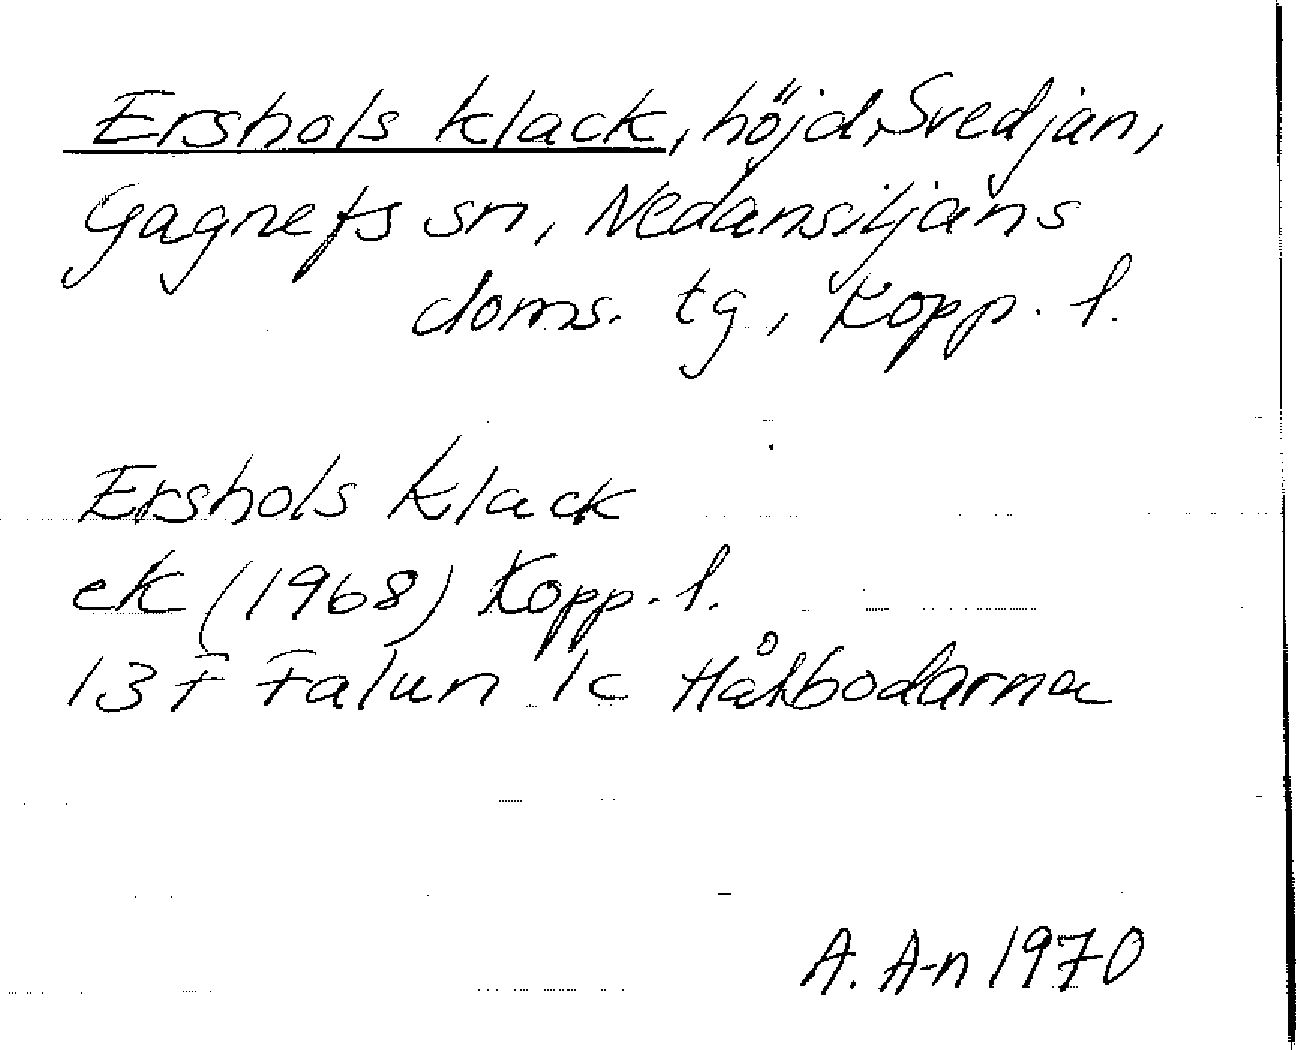 Ershols klack, höjd, Svedjan,
Gagnefs sn, Nedansiljans
doms. tg, Kopp. l.
Ershols klack
ek (1968) Kopp. l.
13F Falun 1c Håkbodarna
A. A-n 1970